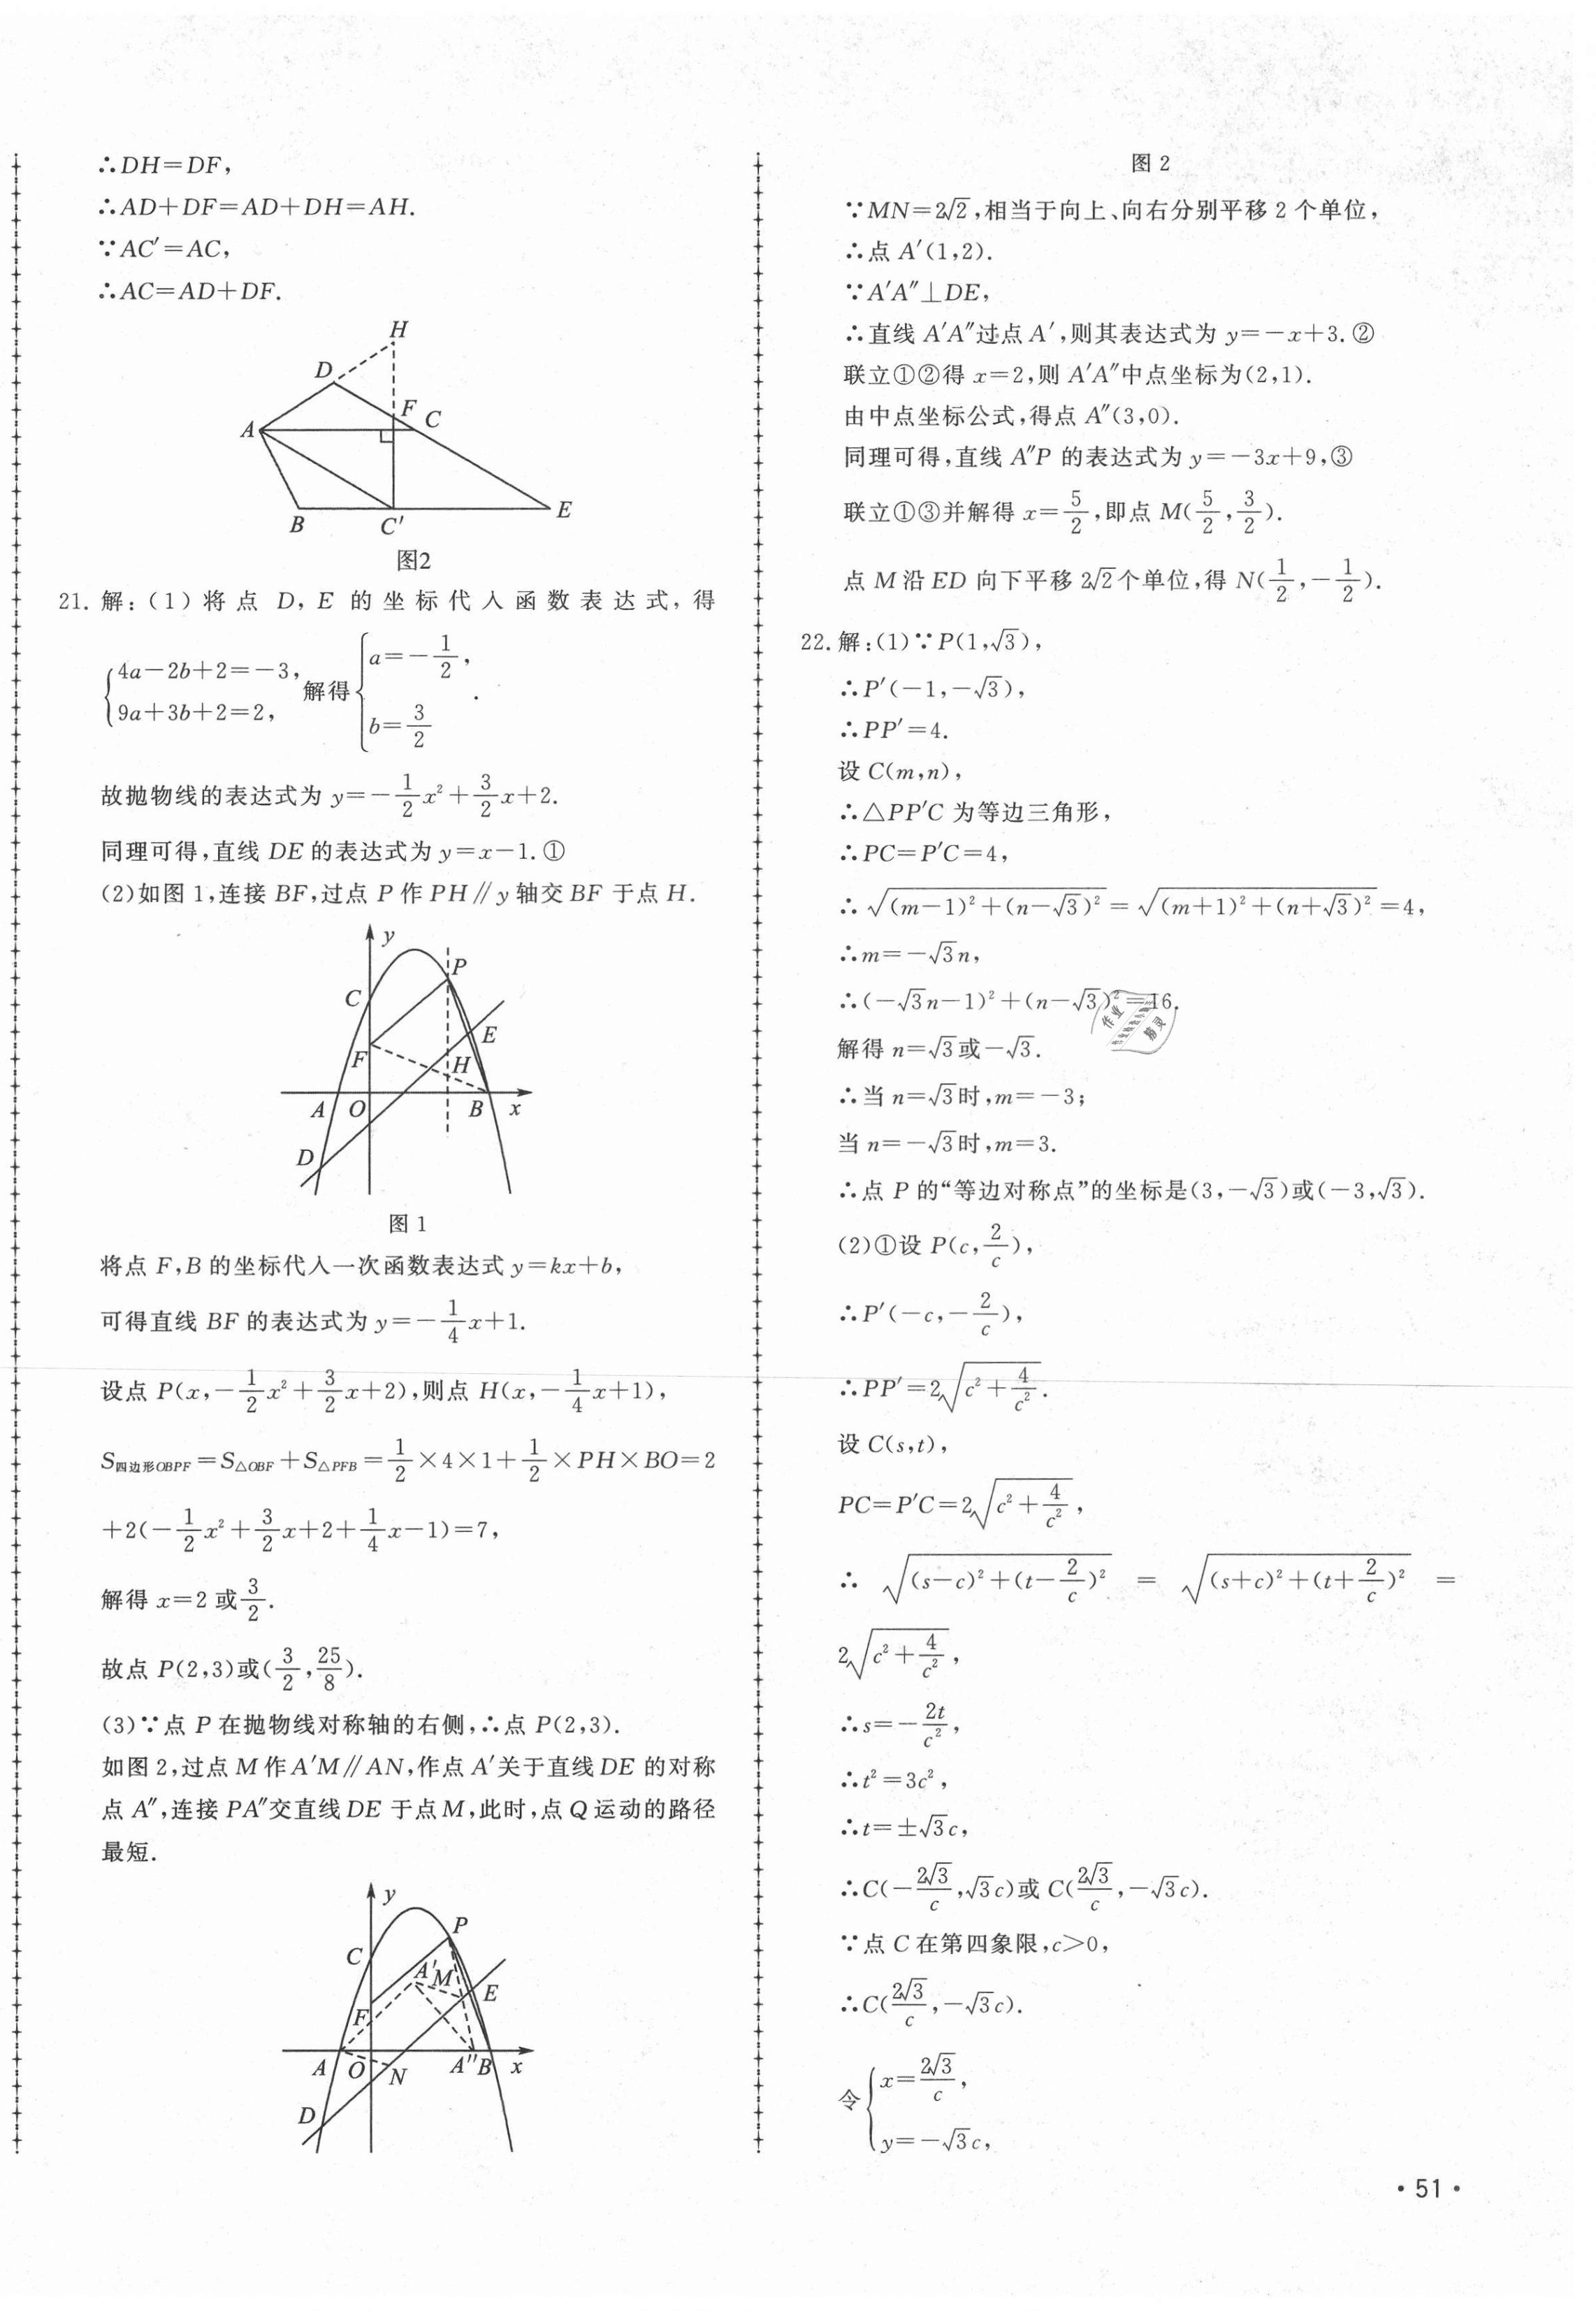 ∴DH=DF,
∴AD+DF=AD+DH=AH.
∵AC′=AC,
∴AC=AD+DF.
H
D
F C
A
B C′ E
图2
21. 解:(1)将点 D, E 的坐标代入函数表达式,得
{4a-2b+2=-3, 9a+3b+2=2, 解得 {a=-1/2, b=3/2 .
故抛物线的表达式为 y=-1/2x²+3/2x+2.
同理可得,直线 DE 的表达式为 y=x-1.①
(2)如图 1,连接 BF,过点 P 作 PH∥y 轴交 BF 于点 H.
y
P
C
E
F
H
A O B x
D
图 1
将点 F,B 的坐标代入一次函数表达式 y=kx+b,
可得直线 BF 的表达式为 y=-1/4x+1.
设点 P(x,-1/2x²+3/2x+2),则点 H(x,-1/4x+1),
S四边形OBPF=S△OBF+S△PFB=1/2×4×1+1/2×PH×BO=2
+2(-1/2x²+3/2x+2+1/4x-1)=7,
解得 x=2 或 3/2.
故点 P(2,3)或(3/2,25/8).
(3)∵点 P 在抛物线对称轴的右侧,∴点 P(2,3).
如图 2,过点 M 作 A′M∥AN,作点 A′关于直线 DE 的对称
点 A″,连接 PA″交直线 DE 于点 M,此时,点 Q 运动的路径
最短.
y
P
C
A′ M
E
F
A O N A″ B x
D
图 2
∵MN=2√2,相当于向上、向右分别平移 2 个单位,
∴点 A′(1,2).
∵A′A″⊥DE,
∴直线 A′A″过点 A′,则其表达式为 y=-x+3.②
联立①②得 x=2,则 A′A″中点坐标为(2,1).
由中点坐标公式,得点 A″(3,0).
同理可得,直线 A″P 的表达式为 y=-3x+9,③
联立①③并解得 x=5/2,即点 M(5/2,3/2).
点 M 沿 ED 向下平移 2√2个单位,得 N(1/2,-1/2).
22. 解:(1)∵P(1,√3),
∴P′(-1,-√3),
∴PP′=4.
设 C(m,n),
∴△PP′C 为等边三角形,
∴PC=P′C=4,
∴√((m-1)²+(n-√3)²)=√((m+1)²+(n+√3)²)=4,
∴m=-√3n,
∴(-√3n-1)²+(n-√3)²=16.
作业
精灵
解得 n=√3或-√3.
∴当 n=√3时,m=-3;
当 n=-√3时,m=3.
∴点 P 的“等边对称点”的坐标是(3,-√3)或(-3,√3).
(2)①设 P(c,2/c),
∴P′(-c,-2/c),
∴PP′=2√(c²+4/c²).
设 C(s,t),
PC=P′C=2√(c²+4/c²),
∴ √((s-c)²+(t-2/c)²) = √((s+c)²+(t+2/c)²) =
2√(c²+4/c²),
∴s=-2t/c²,
∴t²=3c²,
∴t=±√3c,
∴C(-2√3/c,√3c)或 C(2√3/c,-√3c).
∵点 C 在第四象限,c>0,
∴C(2√3/c,-√3c).
令 {x=2√3/c, y=-√3c,
·51·